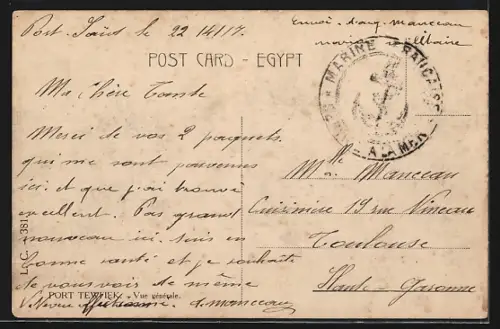 Port-Saïd le 22
Envoi d'aug. Manceau
POST CARD - EGYPT
MARINE FRANÇAISE
Ma chère Tante
Merci de vos 2 paquets
qui me sont parvenus
ici et que j'ai trouvé
excellent. Pas grand
nouveau ici. Suis en
bonne santé et je souhaite
de vous voir de même
Manceau
PORT TEWFIK. - Vue générale.
Melle Manceau
Cuisinière 19 rue Ninau
Toulouse
Haute-Garonne
L.C. 381